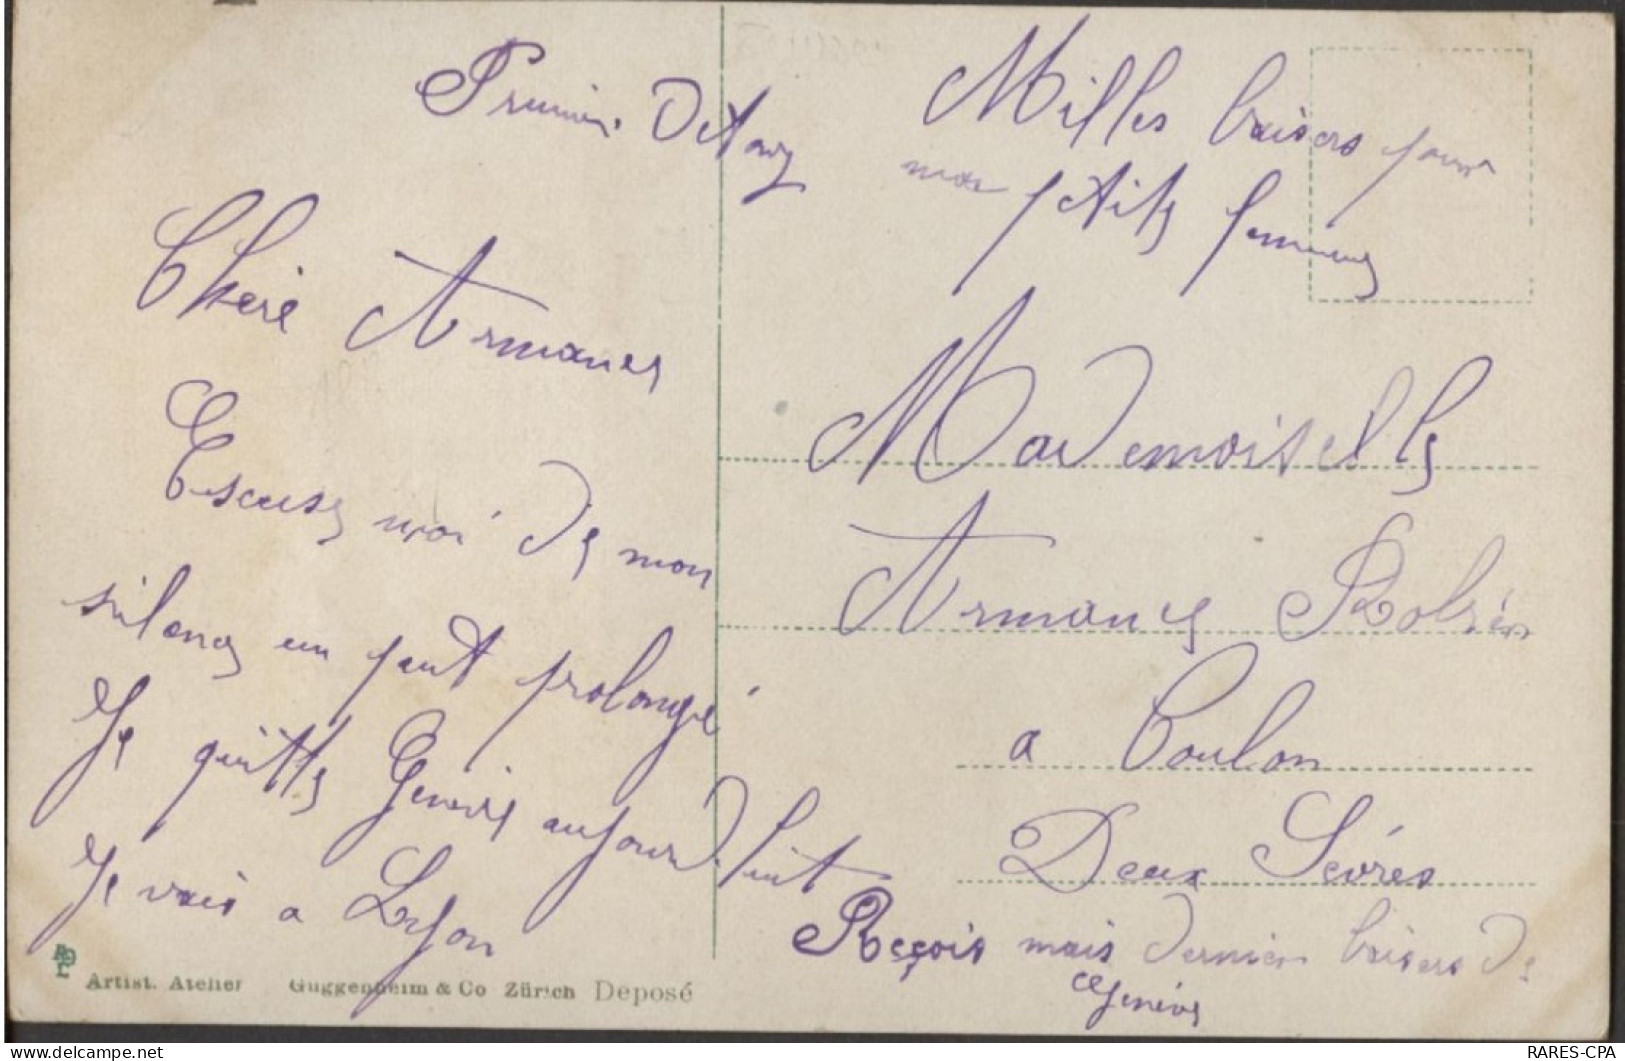 Premier Octobre
Chère Armance
Escuse moi de mon
silence un peut prolongé
Je quitte Genève aujourd'huit
Je vais a Lyon
Milles baisers pour
mes petits femmes
Mademoiselle
Armance Robin
a Coulon
Deux Sévres
Reçois mais dernier baisers de
Genéve
Artist. Atelier Guggenheim & Co Zürich Deposé
RARES-CPA
https://www.delcampe.net